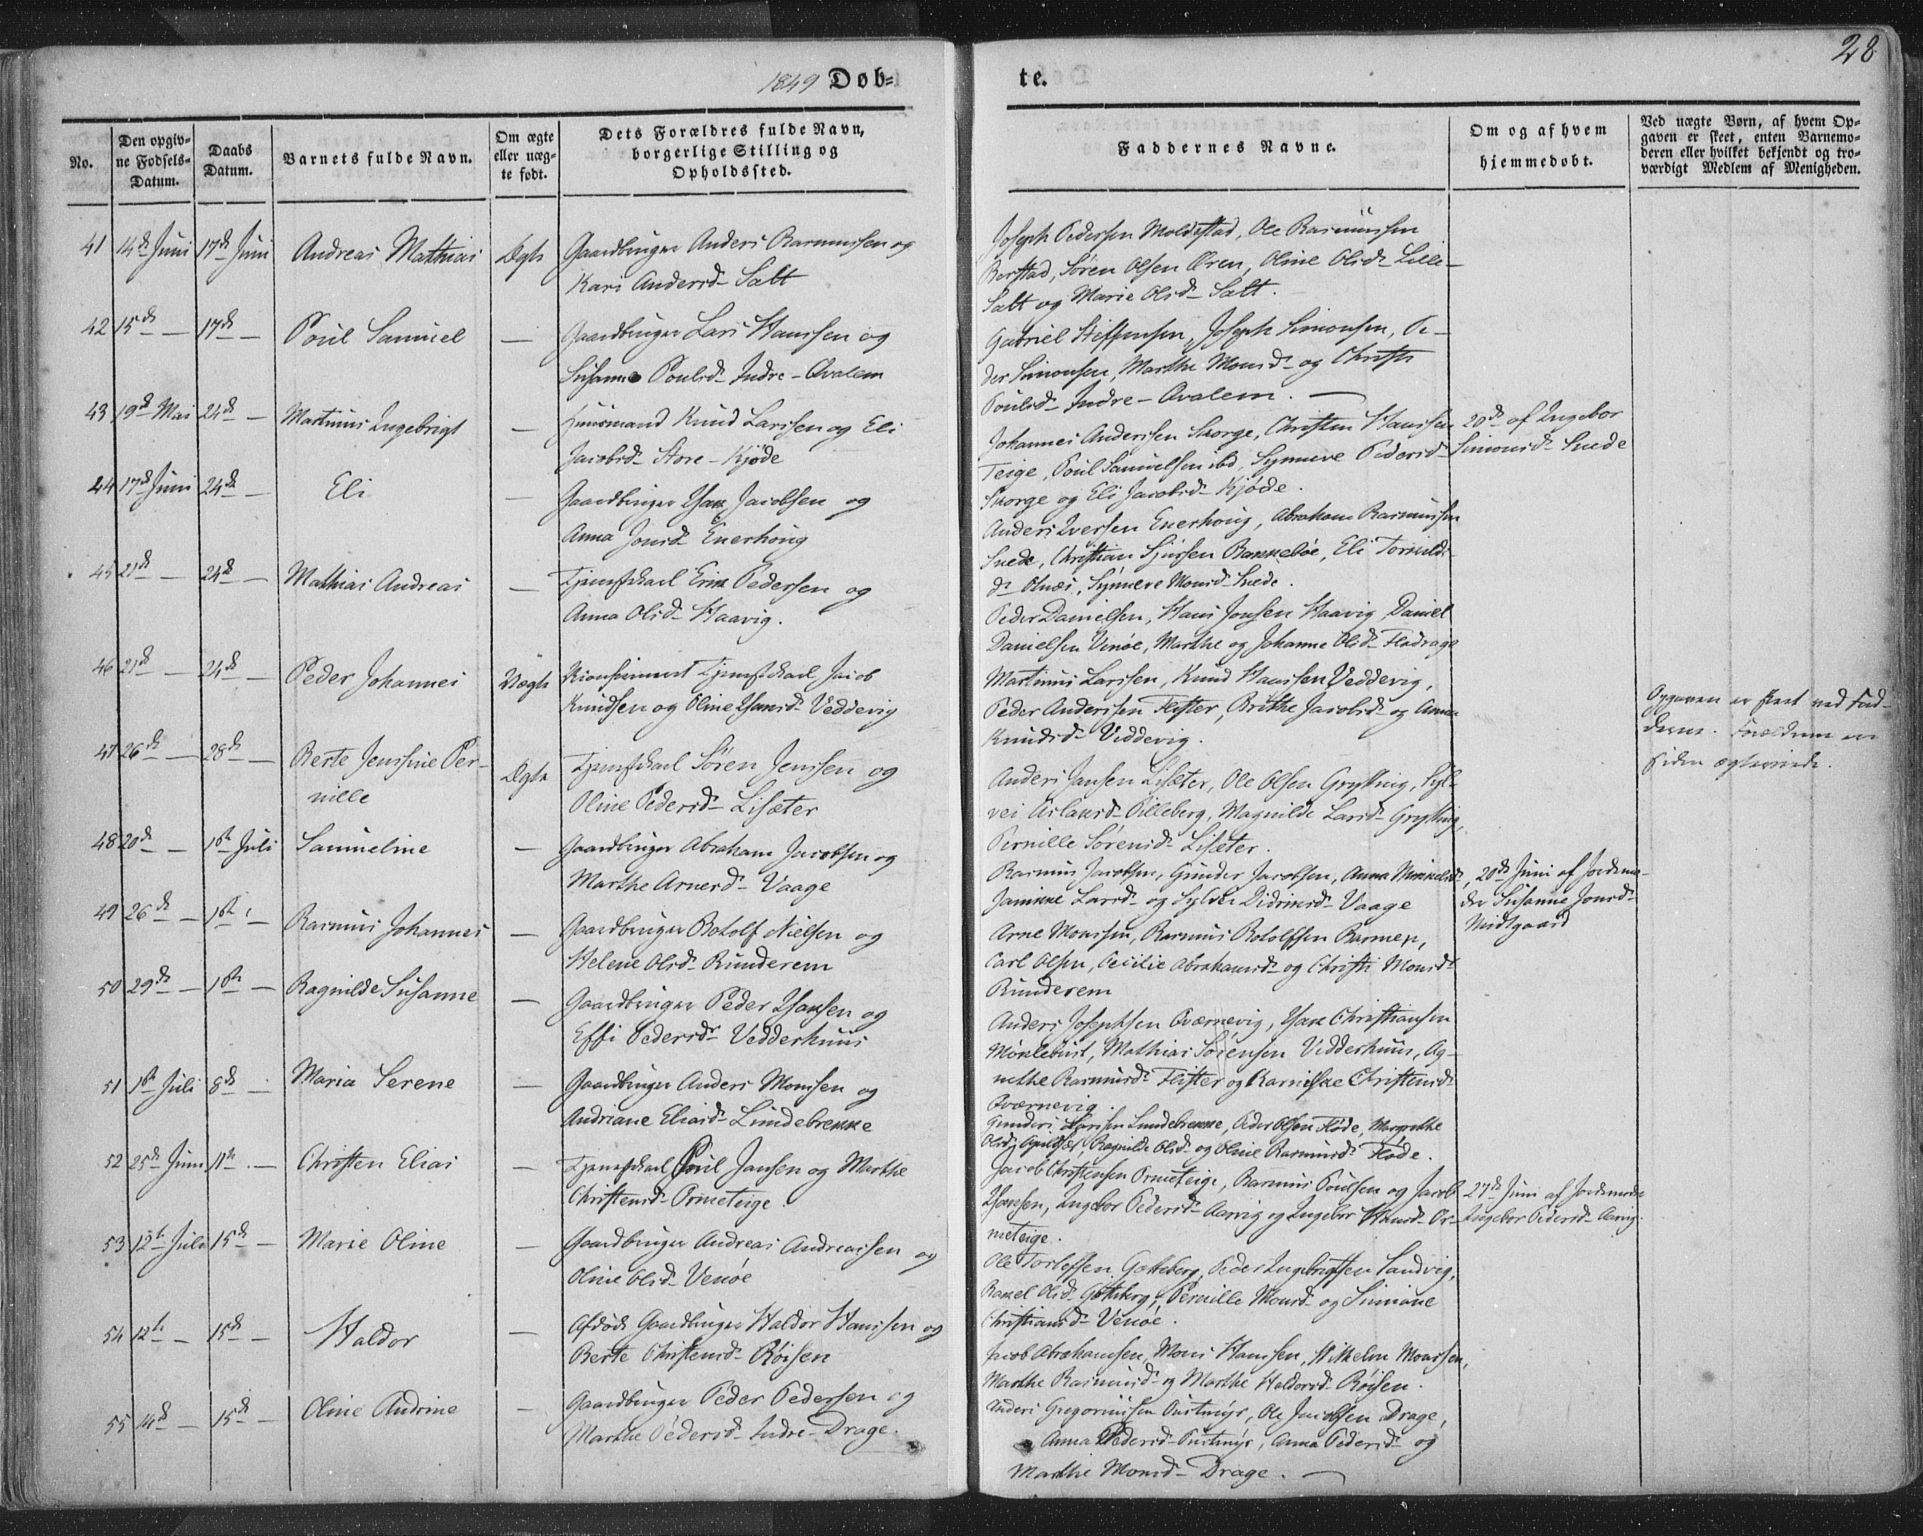 28
1849 Døb-
te.
No.
Den opgiv-
ne Fødsels-
Datum.
Daabs
Datum.
Barnets fulde Navn.
Om ægte
eller uæg-
te født.
Dets Forældres fulde Navn,
borgerlige Stilling og
Opholdssted.
Faddernes Navne.
Om og af hvem
hjemmedøbt.
Ved uægte Børn, af hvem Op-
gaven er skeet, enten Barnemo-
deren eller hvilket bekjendt og tro-
værdigt Medlem af Menigheden.
41 14de Juni 17de Juni Andreas Mathias Ægte Gaardbruger Anders Rasmussen og
Kari Andersd. Salt
Joseph Pedersen Moldestad, Ole Rasmussen
Berstad, Søren Olsen Ören, Oline Olsd. Lille-
Salt og Marie Olsd. Salt.
42 15de — 17de — Poul Samuel — Gaardbruger Lars Hanssen og
Susanne Poulsd. Indre-Qvalem
Gabriel Steffensen, Joseph Simonsen, Pe-
der Simonsen, Marthe Monsd. og Christi
Poulsd. Indre-Qvalem. —
43 19de Mai 24de — Martinus Ingebrigt — Huusmand Knud Larssen og Eli
Jacobsd. Store-Kjøde
Johannes Anderssen Skorge, Christen Hanssen
Teige, Poul Samuelsen ibd, Synneve Pedersd.
Skorge og Eli Jacobsd. Kjøde.
20de af Ingebor
Simonsd. Snede
44 17de Juni 24de — Eli — Gaardbruger Hans Jacobsen og
Anna Jonsd. Enerhoug
Anders Iversen Enerhoug, Abraham Rasmussen
Snede, Christian Sjurssen Bakkebøe, Eli
d. Osnæs, Synneve Monsd. Snede.
45 21de — 24de — Mathias Andreas — Tjenestekarl Erik Pedersen og
Anna Olsd. Haavig.
Peder Danielsen, Hans Jonsen Haavig, Daniel
Danielsen Venøe, Marthe og Johanne Olsd. Fladrage
46 21de — 24de — Peder Johannes Uægte Tjenestekarl Jacob
Knudsen og Oline Hansd. Veddevig
Martinus Larssen, Knud Hanssen Veddevig,
Peder Anderssen Flister, Brithe Jacobsd. og Anna
Knudsd. Veddevig.
Opgaven er skeet ved Fad-
derne. Forældrene er
siden ægteviede.
47 26de — 28de — Berte Jenssine Per-
nille
Ægte Tjenestekarl Søren Jenssen og
Oline Pedersd. Lisæter
Anders Jansen Lisæter, Ole Olsen Grytting, Syl-
vei Erlansd. Pilleberg, Magnilde Larsd. Grytting,
Pernille Sørensd. Lisæter.
48 20de — 1ste Juli Samueline — Gaardbruger Abraham Jacobsen og
Marthe Arnesd. Vaage
Rasmus Jacobsen, Gunder Jacobsen, Anna Mikkelsd.,
Janikke Larsd. og Sylvei Didriksd. Vaage
20de Juni af Jordemo-
der Susanne Jonsd.
Midtgaard
49 26de — 1ste — Rasmus Johannes — Gaardbruger Botolf Nielsen og
Helene Olsd. Runderem
Arne Monssen, Rasmus Botolfsen Barmen,
Carl Olsen, Cecilie Abrahamsd. og Christi Monsd.
Runderem
50 29de — 1ste — Ragnilde Susanne — Gaardbruger Peder Hansen og
Effi Pedersd. Vedderhuus
Anders Josephsen Qværnevig, Hans Christiansen
Møklebust, Mathias Sørensen Vedderhuus, Ag-
nethe Rasmusd. Flister og Karnikke Christensd.
Qværnevig.
51 1ste Juli 8de — Maria Serene — Gaardbruger Anders Monssen og
Andriane Eliasd. Lundebrekke
Gunder Larssen Lundebrekke, Peder Olsen Fløde, Margrethe
Olsd. , Ragnilde Olsd. og Oline Rasmusd. Fløde.
52 25de Juni 11te — Christen Elias — Tjenestekarl Poul Jansen og Marthe
Christensd. Ormeteige.
Jacob Christensen Ormeteige, Rasmus Poulsen og Jacob
Hansen, Ingebor Pedersd. Aarvig og Ingebor Hansd. Or-
meteige.
27de Juni af Jordemoder
Ingebor Pedersd. Aarvig.
53 12te Juli 15de — Marie Oline — Gaardbruger Andreas Andreassen og
Oline Olsd. Venøe
Ole Torlefsen Gotteberg, Peder Ingebrigtsen Sandvig,
Rakel Olsd. Gotteberg, Pernille Monsd. og Simione
Christiansd. Venøe.
54 12te — 15de — Haldor — Afdøde Gaardbruger Haldor Hanssen og
Berte Christensd. Røisen
Jacob Abrahamsen, Mons Hanssen, Wilhelm Monssen,
Marthe Rasmusd. og Marthe Haldorsd. Røisen.
55 14de — 15de — Oline Andrine — Gaardbruger Peder Pedersen og
Marthe Pedersd. Indre-Drage.
Anders Gregoriussen Pustmyr, Ole Jacobsen Drage,
Anna Pedersd. Pustmyr, Anna Pedersd. og
Marthe Monsd. Drage. —